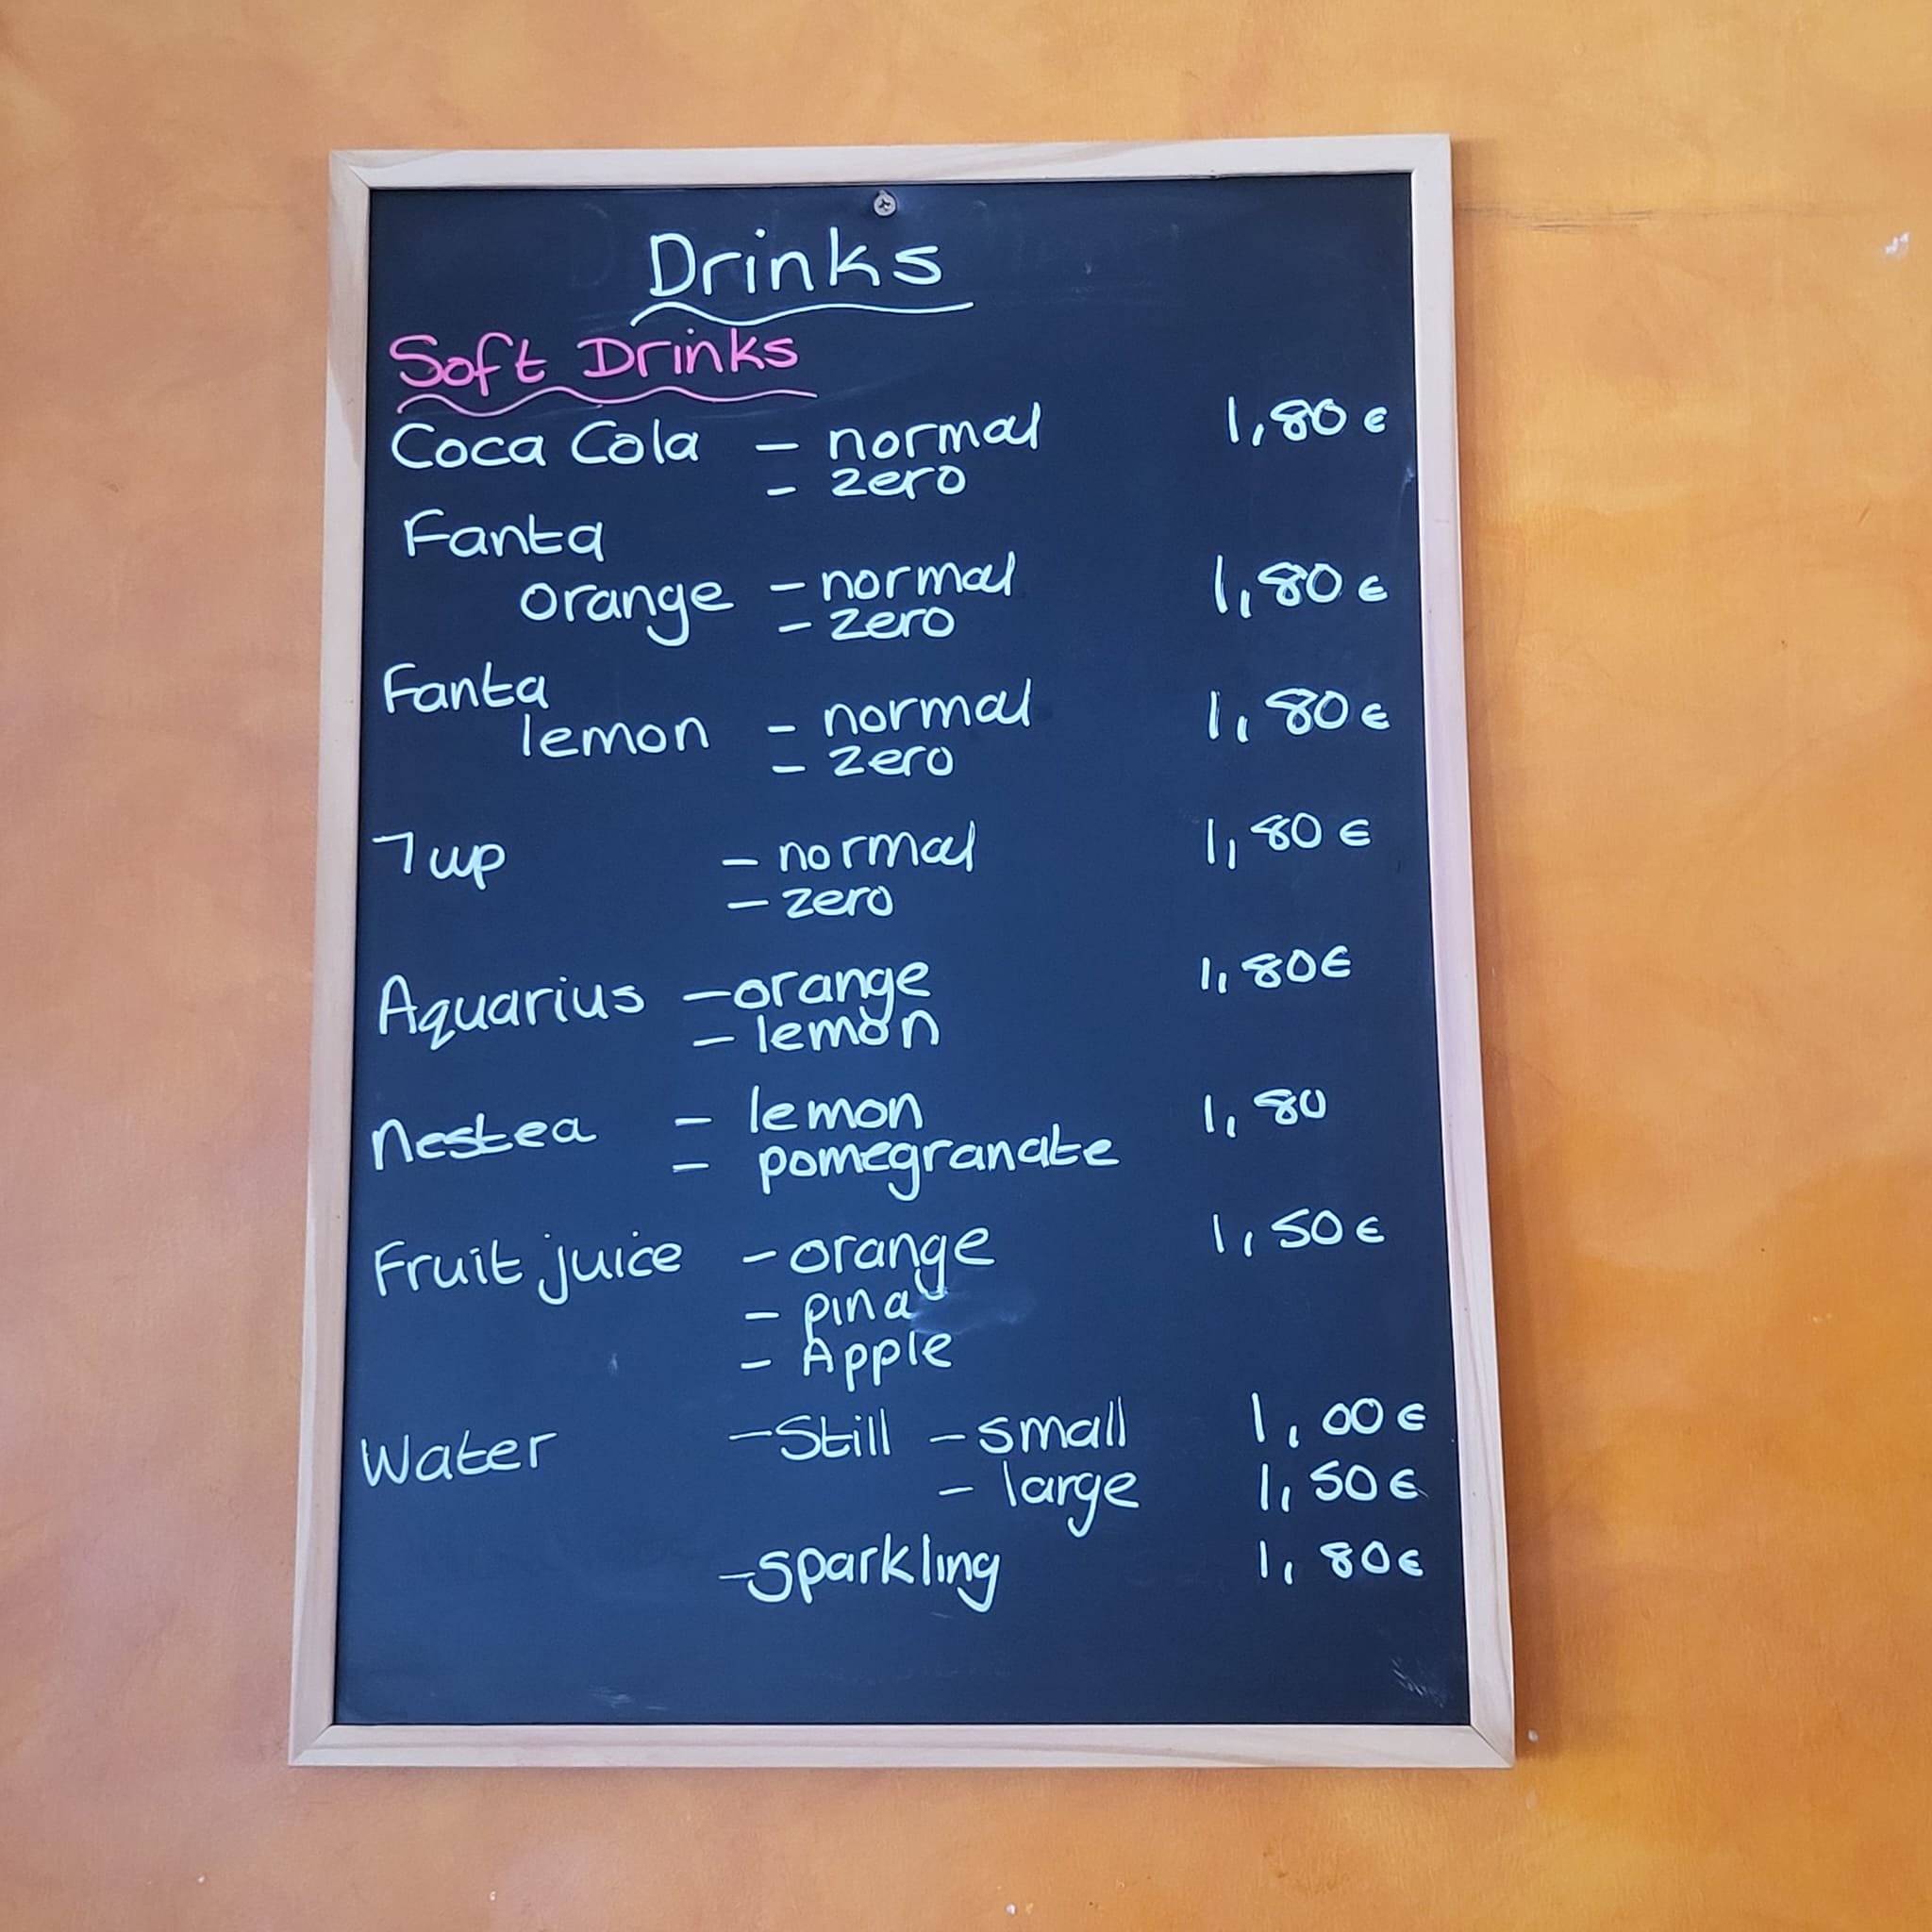 Drinks
Soft Drinks
Coca Cola - normal 1,80 €
- zero
Fanta
orange - normal 1,80 €
- zero
Fanta
lemon - normal 1,80 €
- zero
7up - normal 1,80 €
- zero
Aquarius - orange 1,80 €
- lemon
nestea - lemon 1,80
- pomegranate
Fruit juice - orange 1,50 €
- pina
- Apple
Water - Still - small 1,00 €
- large 1,50 €
- sparkling 1,80 €